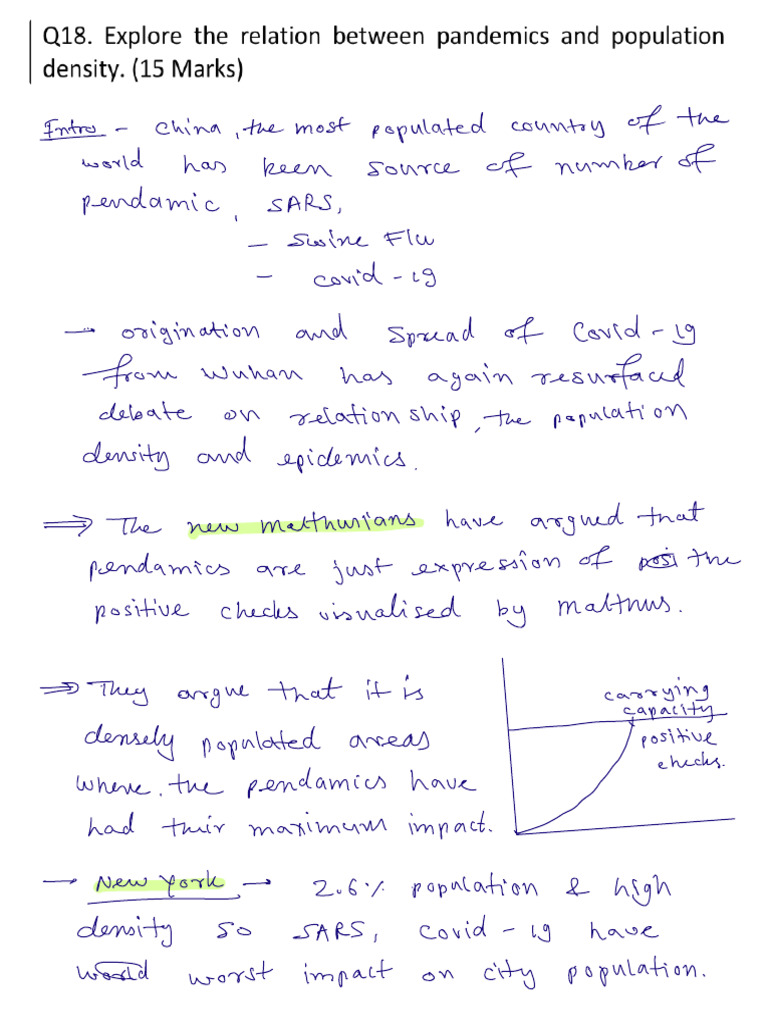 Q18. Explore the relation between pandemics and population
density. (15 Marks)
Intro - China, the most populated country of the
world has been source of number of
pendamic, SARS,
- Swine Flu
- Covid-19
→ origination and Spread of Covid-19
from Wuhan has again resurfaced
debate on relationship, the population
density and epidemics.
⇒ The new malthusians have argued that
pendamics are just expression of the
positive checks visualised by Malthus.
⇒ They argue that it is
densely populated areas
where, the pendamics have
had their maximum impact.
carrying
capacity
positive
checks.
→ New York → 2.6% population & high
density so SARS, Covid-19 have
worst impact on city population.